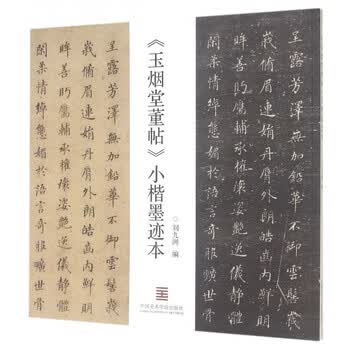 呈露芳澤無加鉛華不御雲髻峩
峩脩眉連娟丹脣外朗皓齒内鮮明
眸善眄靨輔承權瓌姿艷逸儀靜體
閑柔情綽態媚於語言奇服曠世骨
《玉烟堂董帖》小楷墨迹本
刘九洲 编
中国美术学院出版社
呈露芳澤無加鉛華不御雲髻峩
峩脩眉連娟丹脣外朗皓齒内鮮明
眸善眄靨輔承權瓌姿艷逸儀靜體
閑柔情綽態媚於語言奇服曠世骨